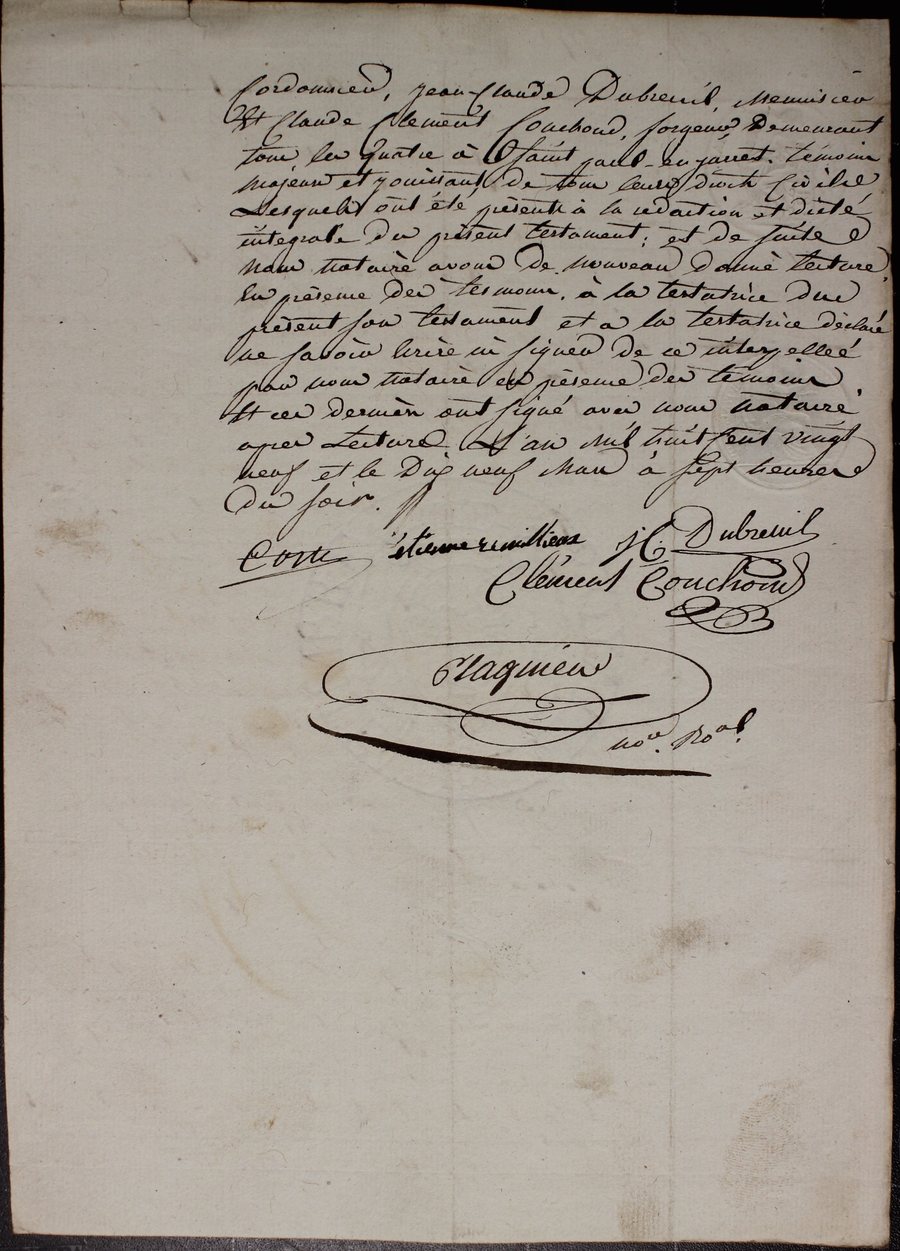 Cordonnier, Jean Claude Dubreuil, Menuisier
Et Claude Clement Couchoud, forgeur, Demeurant
tous les quatre à Saint paul-en-jarret. témoins
majeurs et jouissant de tous leurs droits Civils
Lesquels ont été présents à la rédaction et dicté
intégrale du présent testament; et de suite
nous notaire avons de nouveau donné lecture,
en présence des temoins, à la testatrice du
présent son testament et a la testatrice déclaré
ne savoir lirire ni signer de ce interpellée
par nous notaire en présence des témoins
Et ces derniers ont signé avec nous notaire
apres Lecture L'an mil huit Cent vingt
neuf et le Dix neuf Mars à Sept heures
du soir.
Coste étienne remillieux JC Dubreuil
Clément Couchoud
Flaquieu
nore. Roal.